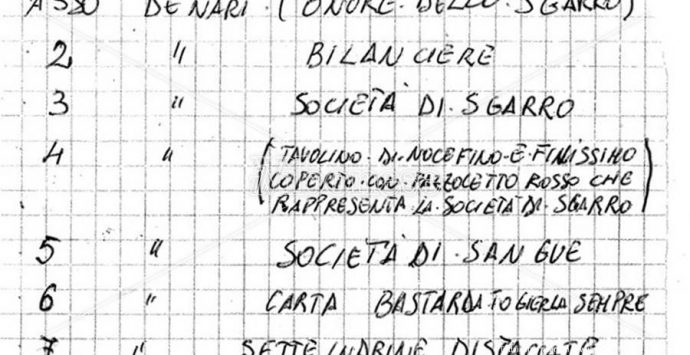 ASSO DENARI. (ONORE. DELLO. SGARRO)
2 " BILANCIERE
3 " SOCIETÀ DI. SGARRO
4 " (TAVOLINO. DI. NOCE FINO. E. FINISSIMO
COPERTO. CON. FAZZOLETTO ROSSO CHE
RAPPRESENTA. LA. SOCIETÀ DI. SGARRO)
5 " SOCIETÀ DI. SANGUE
6 " CARTA BASTARDA TOGIERLA SEMPRE
7 " SETTE DISTACCATE